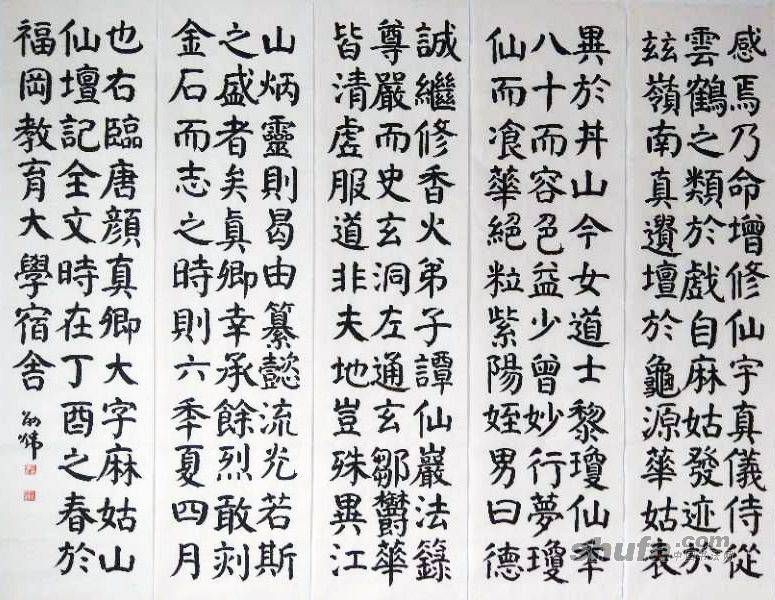 感焉乃命增修仙宇真儀侍從
雲鶴之類於戲自麻姑發迹於
玆嶺南真遺壇於龜源華姑表
異於丼山今女道士黎瓊仙秊
八十而容色益少曾妙行夢瓊
仙而飡華絕粒紫陽姪男曰德
誠繼修香火弟子譚仙巖法籙
尊嚴而史玄洞左通玄鄒欝華
皆清虛服道非夫地豈殊異江
山炳靈則曷由纂懿流光若斯
之盛者矣眞卿幸承餘烈敢刻
金石而志之時則六秊夏四月
也右臨唐顏真卿大字麻姑山
仙壇記全文時在丁酉之春於
福岡教育大學宿舍
shufa.com